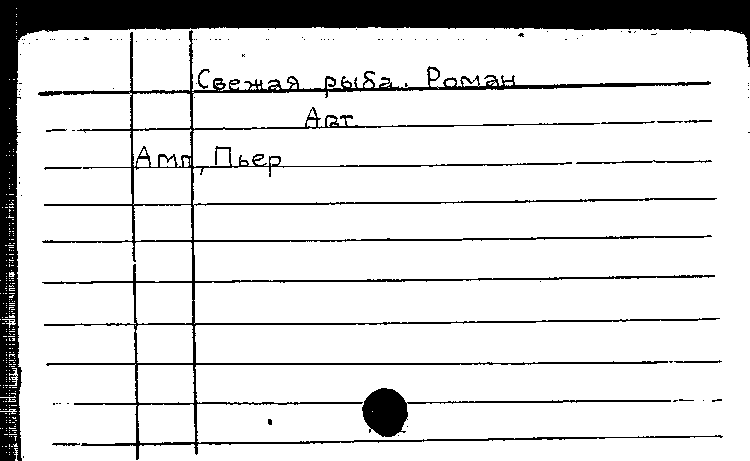 Свежая рыба. Роман
Авт.
Амп, Пьер